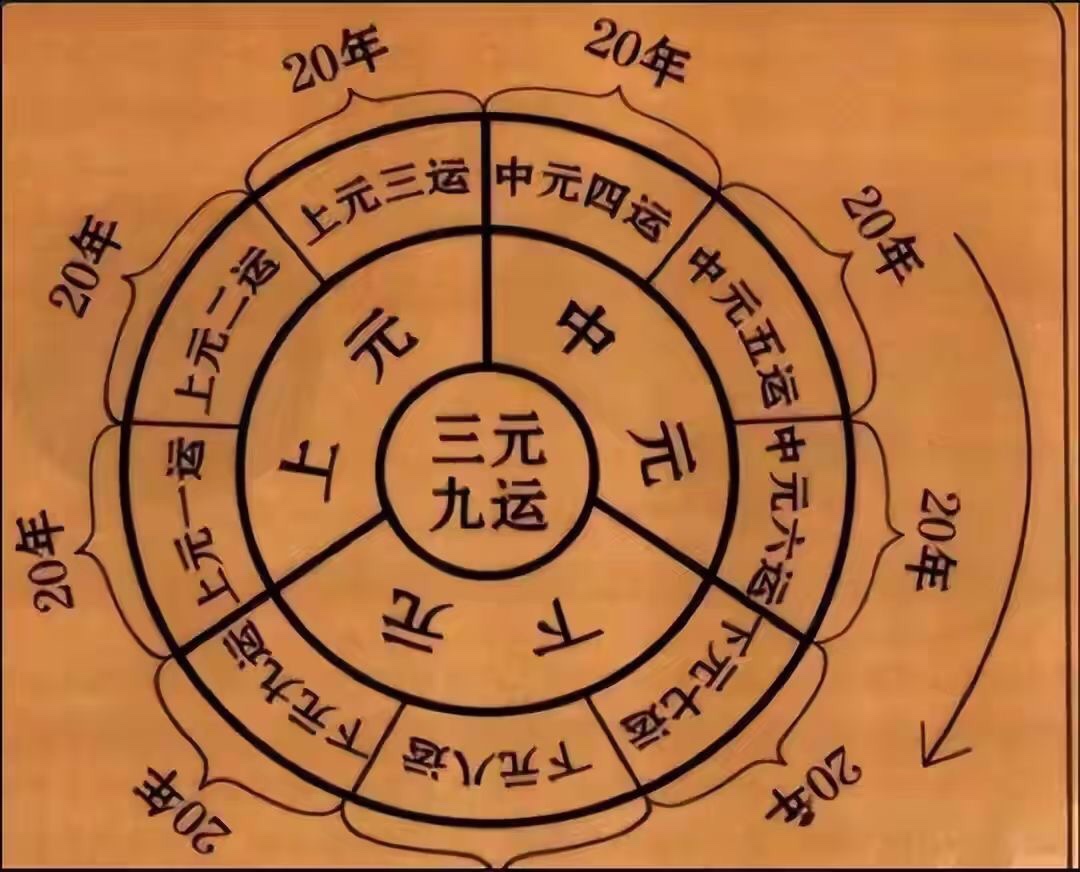 三元
九运
上元
中元
下元
上元一运
上元二运
上元三运
中元四运
中元五运
中元六运
下元七运
下元八运
下元九运
20年
20年
20年
20年
20年
20年
20年
20年